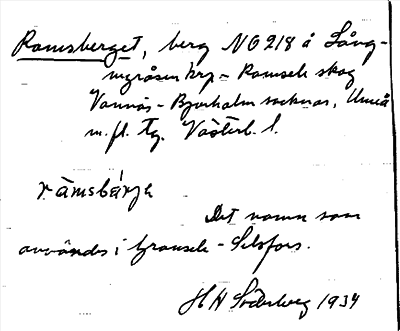 Ramsberget, berg NO 218 å Lång-
myråsen krp - Ramsele skog
Vännäs - Bjurholm socknar, Umeå
m. fl. tg. Västerb. l.
ramsbärje
Det namn som
användes i Gransele - Selsfors.
H H Söderberg 1934